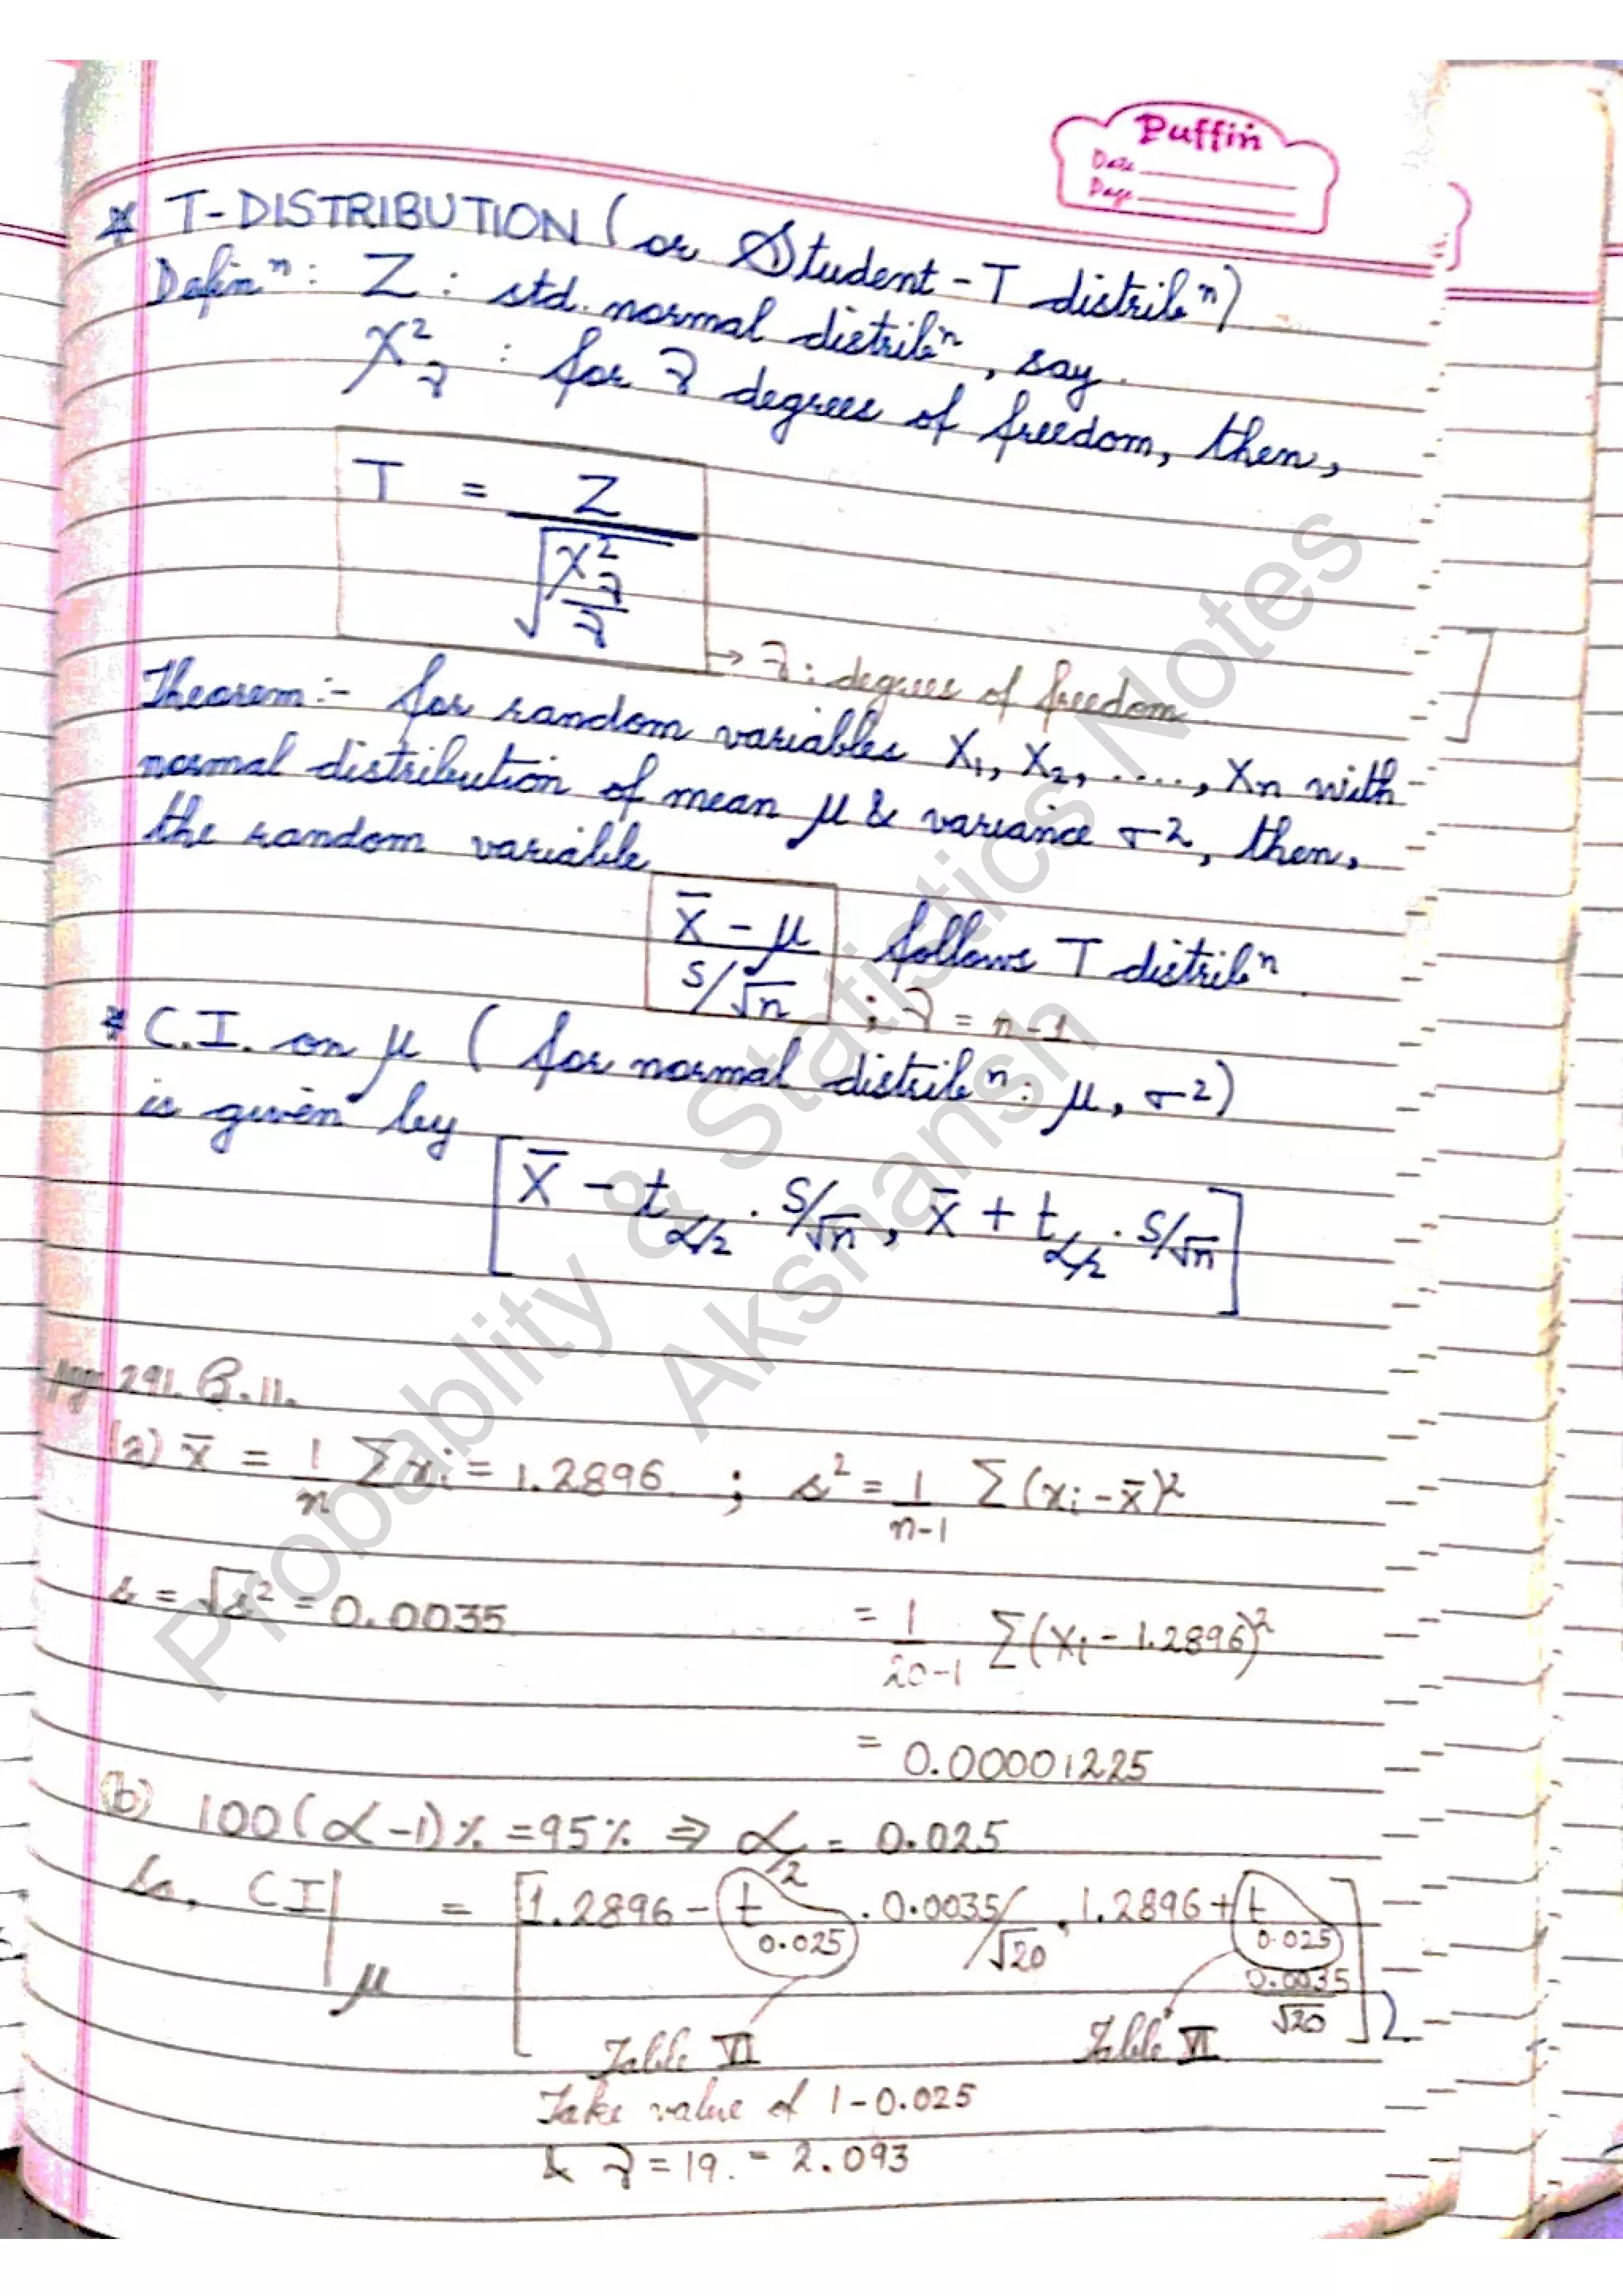 Puffin
Date
Page
* T-DISTRIBUTION (or Student-T distribⁿ)
Definⁿ: Z : std. normal distribⁿ, say
χ²_γ : for γ degrees of freedom, then,
T = Z / √(χ²_γ / γ)
→ γ: degrees of freedom
Theorem:- for random variables X₁, X₂, ...., Xn with
normal distribution of mean μ & variance σ², then,
the random variable
(X̄ - μ) / (S/√n) follows T distribⁿ
; γ = n-1
* C.I. on μ ( for normal distribⁿ: μ, σ²)
is given by
[X̄ - t_α/2 . S/√n, X̄ + t_α/2 . S/√n]
page 291. 8.11.
(a) x̄ = 1/n Σxi = 1.2896 ; s² = 1/(n-1) Σ(xi - x̄)²
s = √s² = 0.0035 = 1/(20-1) Σ(xi - 1.2896)²
= 0.00001225
(b) 100(α-1)% = 95% ⇒ α/2 = 0.025
So, CI|μ = [1.2896 - t_0.025 . 0.0035/√20, 1.2896 + t_0.025 0.0035/√20]
Table VI Table VI
Take value of 1-0.025
& γ = 19. = 2.093
Probablity & Statistics Notes
Akshansh